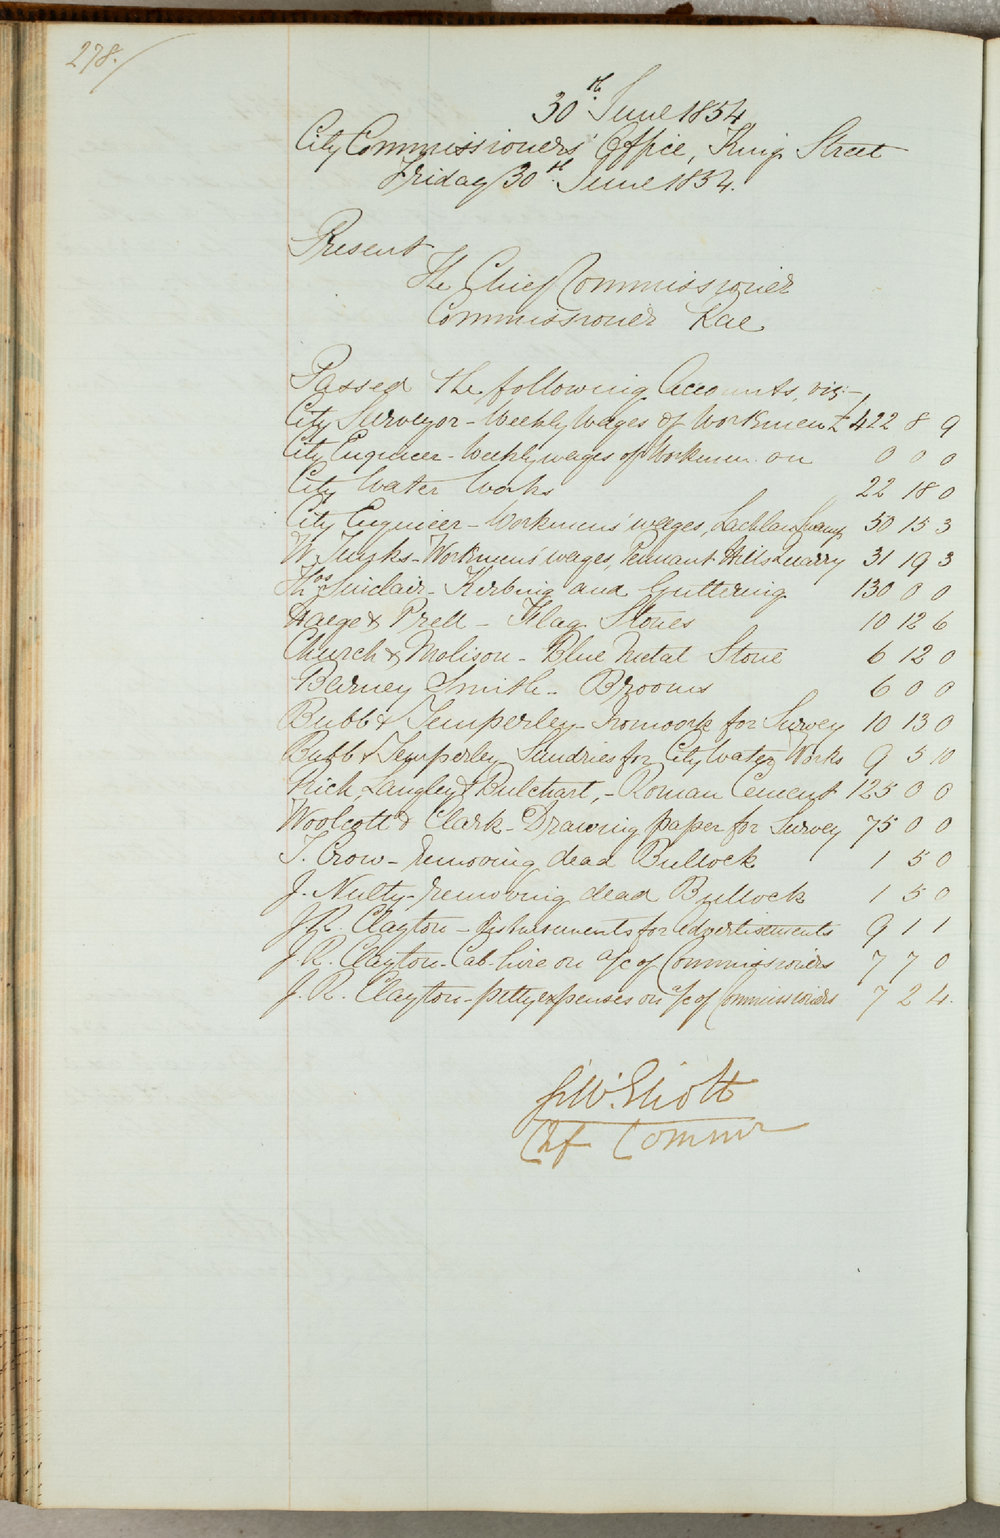 278.
30th June 1854
City Commissioners' Office, King Street
Friday 30th June 1854.
Present
The Chief Commissioner
Commissioner Rae
Passed the following Accounts, viz:-
City Surveyor - Weekly Wages of Workmen £422 8 9
City Engineer - Weekly wages of Workmen on 0 0 0
City Water Works 22 18 0
City Engineer - Workmens' wages, Lachlan Swamp 50 15 3
W. Workmens' wages, Pennant Hills Quarry 31 19 3
Thos Sinclair - Kerbing and Guttering 130 0 0
Haege & Prell - Flag Stones 10 12 6
Church & Molison - Blue Metal Stone 6 12 0
Barney Smith - Brooms 6 0 0
Bubb & Temperley - Ironwork for Survey 10 13 0
Bubb & Temperley Sundries for City Water Works 9 5 10
Rich, Langley & Butchart, - Roman Cement 125 0 0
Woolcott & Clark - Drawing paper for Survey 75 0 0
T. Crow - removing dead Bullock 1 5 0
J. Nulty - removing dead Bullock 1 5 0
J.R. Clayton - disbursements for advertisements 9 1 1
J.R. Clayton - Cab-hire on a/c of Commissioners 7 7 0
J.R. Clayton - petty expenses on a/c of Commissioners 7 2 4.
G. W. Eliott
Chf Commr